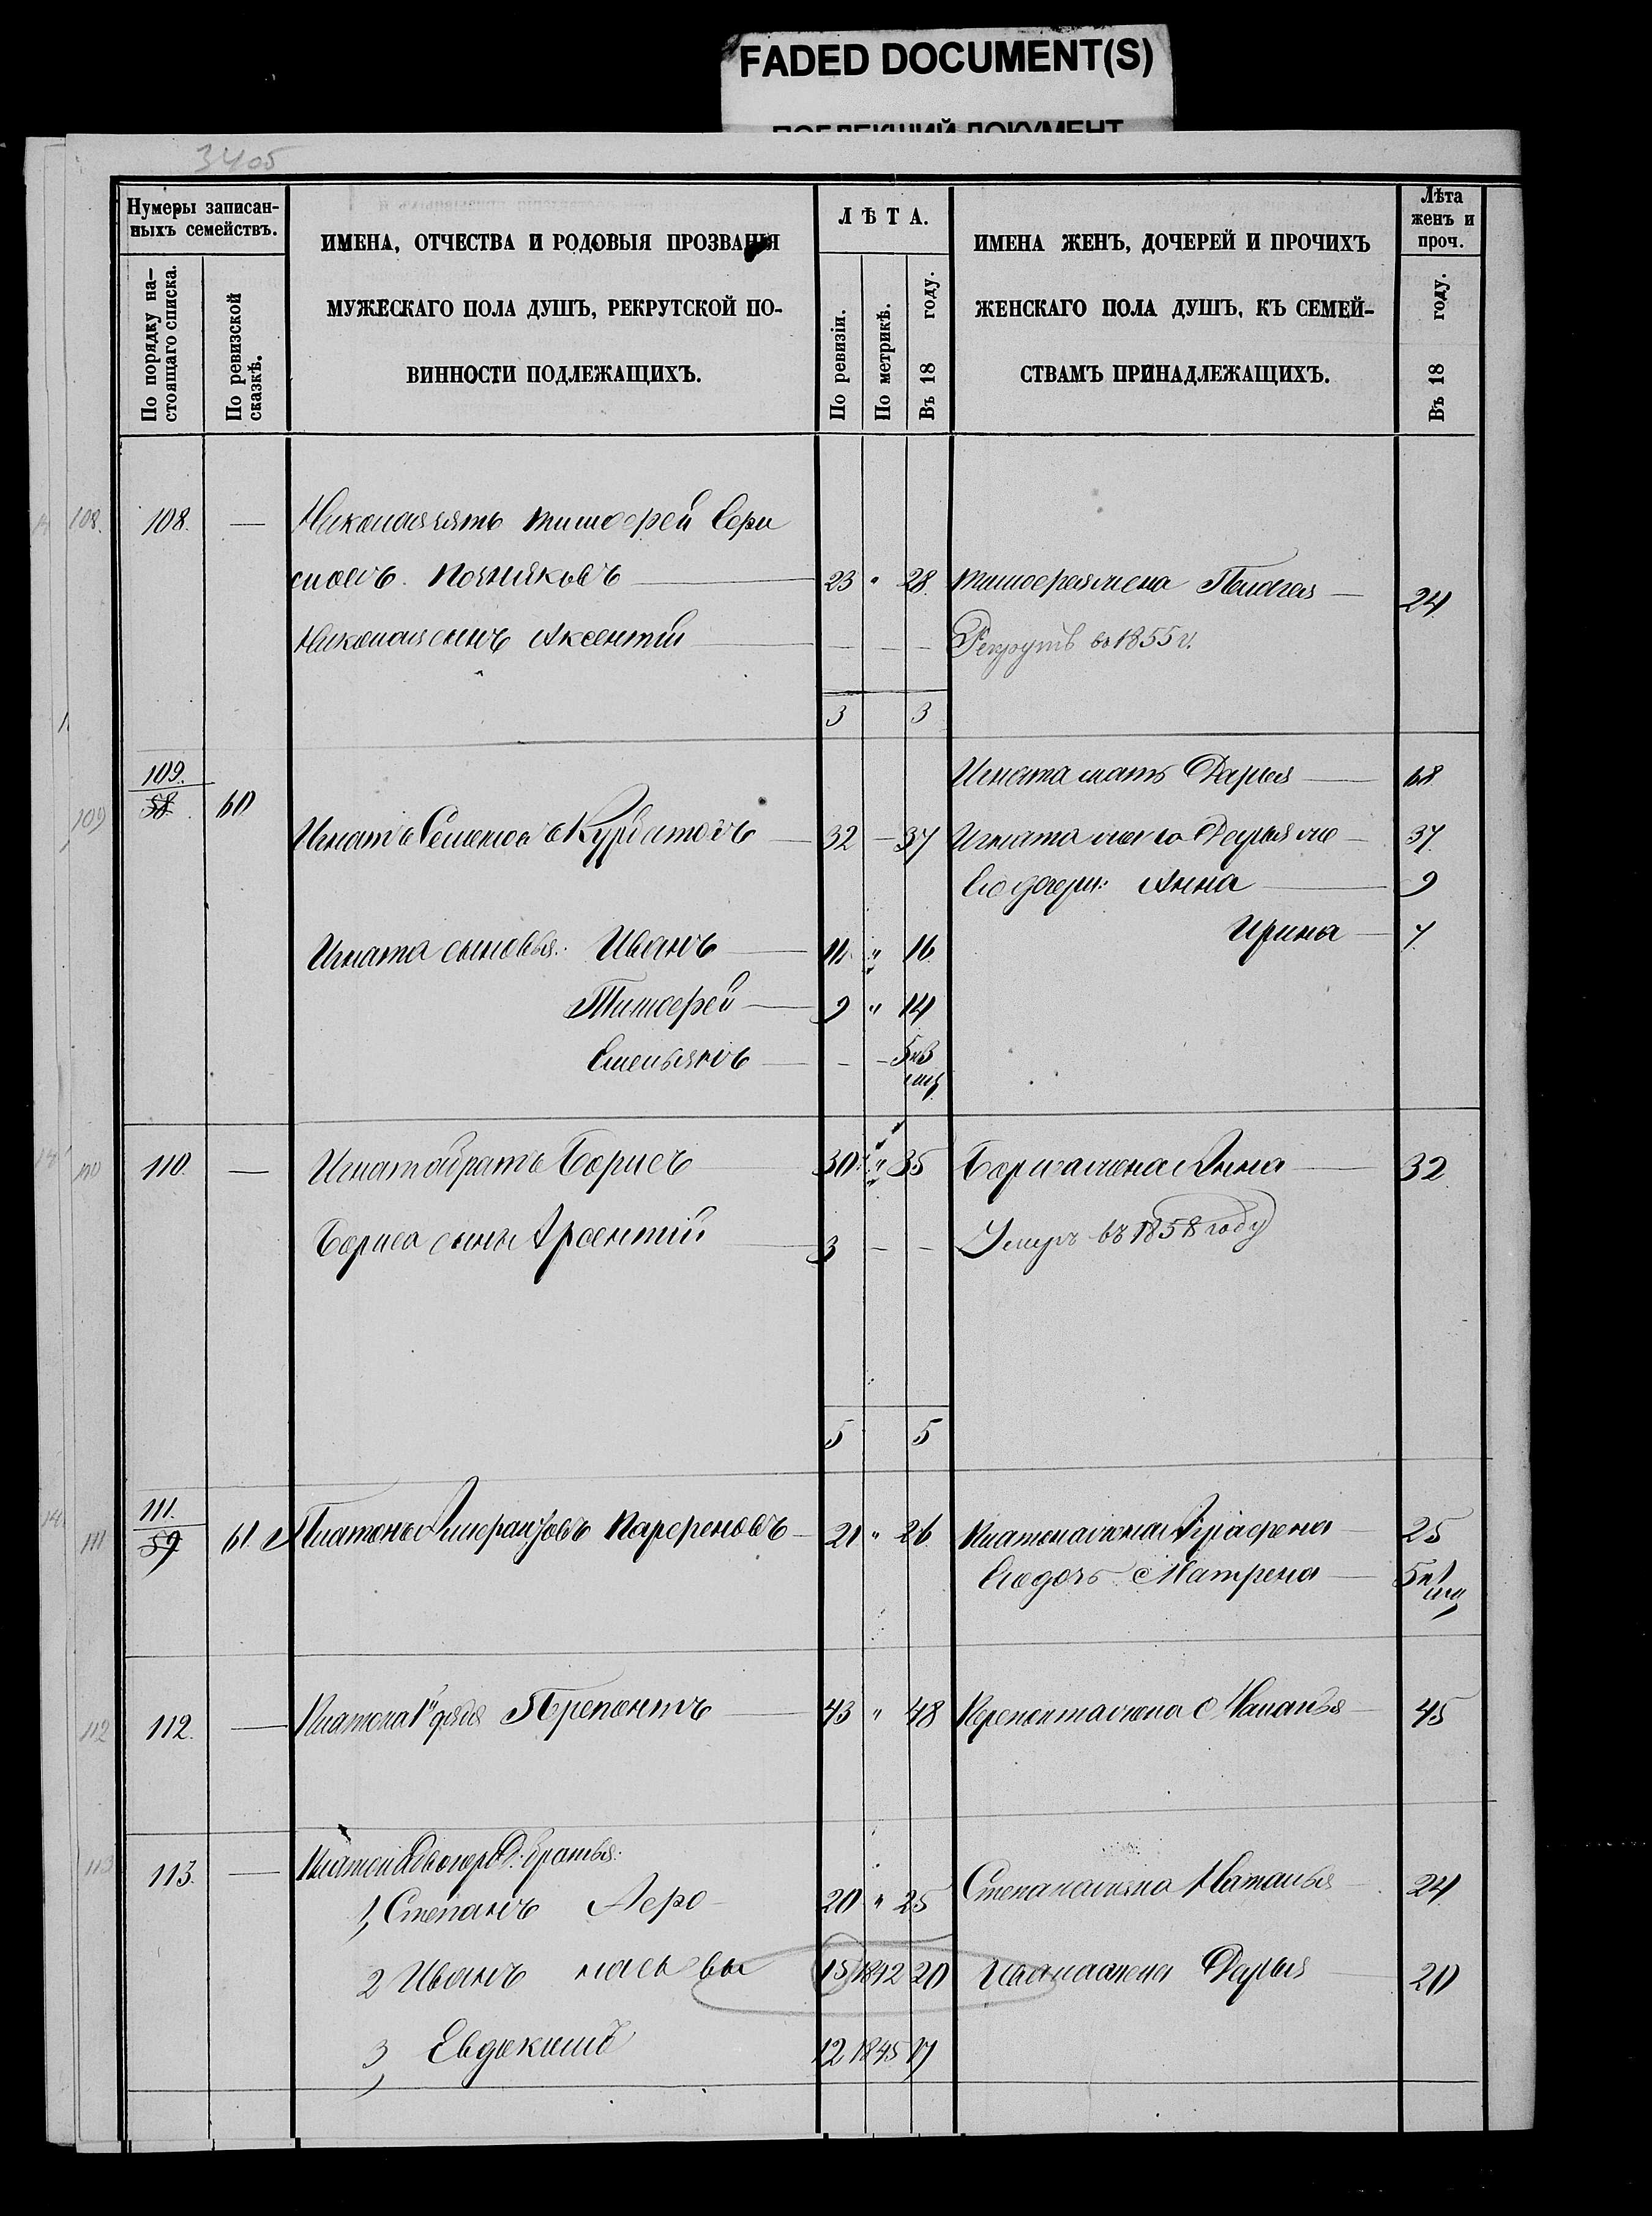 FADED DOCUMENT(S)
ПОБЛЕКШИЙ ДОКУМЕНТ
34 об
Нумеры записан-
ныхъ семействъ.
По порядку на-
стоящаго списка.
По ревизской
сказкѣ.
ИМЕНА, ОТЧЕСТВА И РОДОВЫЯ ПРОЗВАНІЯ
МУЖЕСКАГО ПОЛА ДУШЪ, РЕКРУТСКОЙ ПО-
ВИННОСТИ ПОДЛЕЖАЩИХЪ.
ЛѢТА.
По ревизіи.
По метрикѣ.
Въ 18 году.
ИМЕНА ЖЕНЪ, ДОЧЕРЕЙ И ПРОЧИХЪ
ЖЕНСКАГО ПОЛА ДУШЪ, КЪ СЕМЕЙ-
СТВАМЪ ПРИНАДЛЕЖАЩИХЪ.
Лѣта
женъ и
проч.
Въ 18 году.
108. 108. — Николая зять Тимоѳей
Поляковъ — 23 " 28. Тимоѳея жена Пелагея — 24
Николая сынъ Аксентій — — — — Рекрутъ въ 1855 г.
3 3
109.
58. 60 Игната мать Дарья — 68
109 Игнатъ Семеновъ Курбатовъ — 32 — 37 Игната жена Дарья — 37
Его дочери: Анна — 9
Игната сыновья: Иванъ — 11 " 16 Ирина — 7
Тимоѳей — 9 " 14
Емельянъ — — — 5 и 3
мѣс
110 110. — Игната братъ Борисъ 30 " 35 Бориса жена Анна — 32
Бориса сынъ Арсентій — 3 — — Умеръ въ 1858 году
5 5
111.
59 111 61 Платонъ Парфеновъ — 21 " 26 Платона жена Аграфена 25
Его дочь Матрена — 5 и 1
мѣс
112 112. — Платона 1й дядя Терентъ — 43 " 48 жена Маланья — 45
113 113. — Платона двоюрод: братья:
1, Степанъ Аѳо- 20 " 25 Степана жена Наталья — 24
2 Иванъ насьевы 15 1842 20 Ивана жена Дарья — 20
3, Евдокимъ 12 1845 17